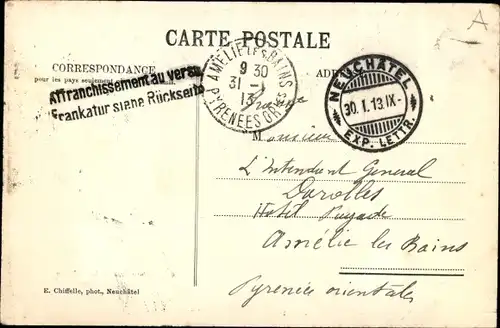 A
CARTE POSTALE
CORRESPONDANCE
pour les pays seulement
ADR
Affranchissement au verso
Frankatur siehe Rückseite
AMÉLIE LES BAINS
9 30
31 - 1
13
PYRENEES ORles
NEUCHÂTEL
30.1.13.IX-
EXP. LETTR.
France
Monsieur
L'Intendant General
Darolles
Hotel Pujade
Amélie les Bains
E. Chiffelle, phot., Neuchâtel
Pyrenée orientales